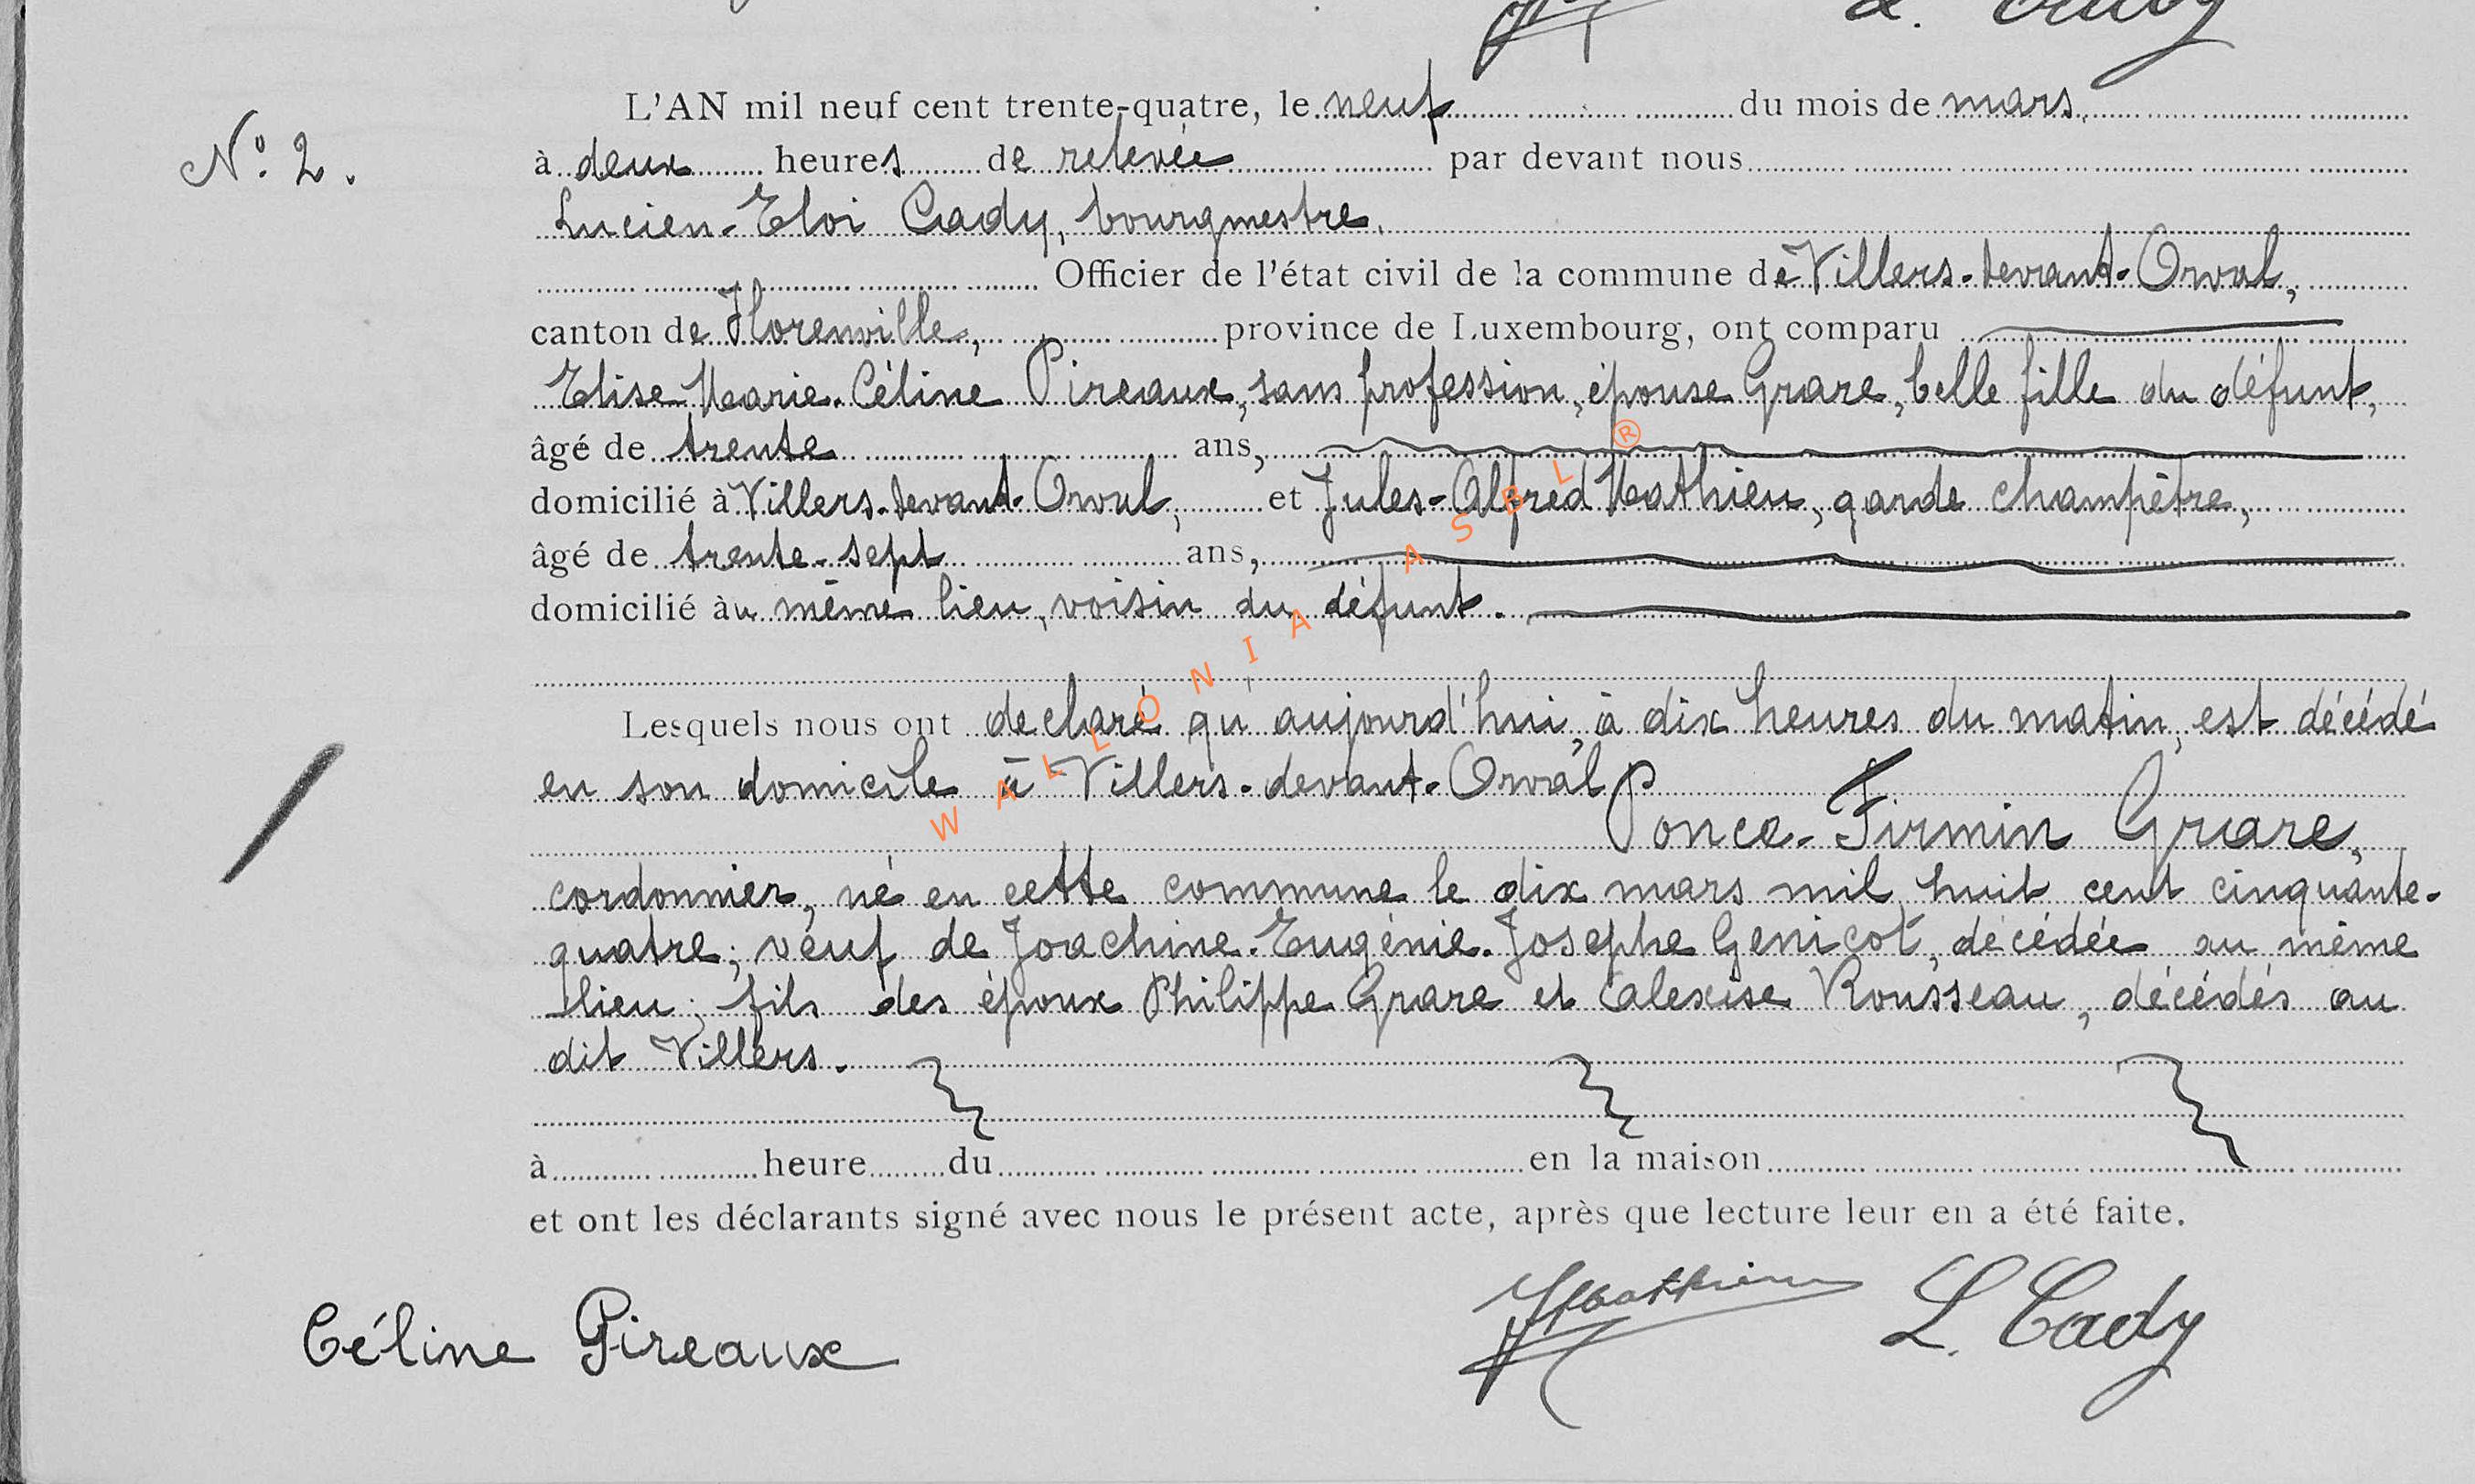 L. Cady
L'AN mil neuf cent trente-quatre, le neuf du mois de mars,
N° 2.
à deux heures de relevée par devant nous
Lucien-Eloi Cady, bourgmestre,
Officier de l'état civil de la commune de Villers-devant-Orval,
canton de Florenville, province de Luxembourg, ont comparu
Elise-Marie-Céline Pireaux, sans profession, épouse Grare, belle fille du défunt,
âgé de trente ans,
domicilié à Villers-devant-Orval, et Jules-Alfred Mathieu, garde champêtre,
âgé de trente-sept ans,
domicilié au même lieu, voisin du défunt.
Lesquels nous ont declaré qu'aujourd'hui, à dix heures du matin, est décédé
en son domicile à Villers-devant-Orval
Ponce-Firmin Grare,
cordonnier, né en cette commune le dix mars mil huit cent cinquante-
quatre; veuf de Joachine-Eugénie-Josephe Genicot, décédée au même
lieu; fils des époux Philippe Grare et Calexise Rousseau, décédés au
dit Villers.
à heure du en la maison
et ont les déclarants signé avec nous le présent acte, après que lecture leur en a été faite.
Céline Pireaux JMathieu L. Cady
WALLONIA ASBL ®